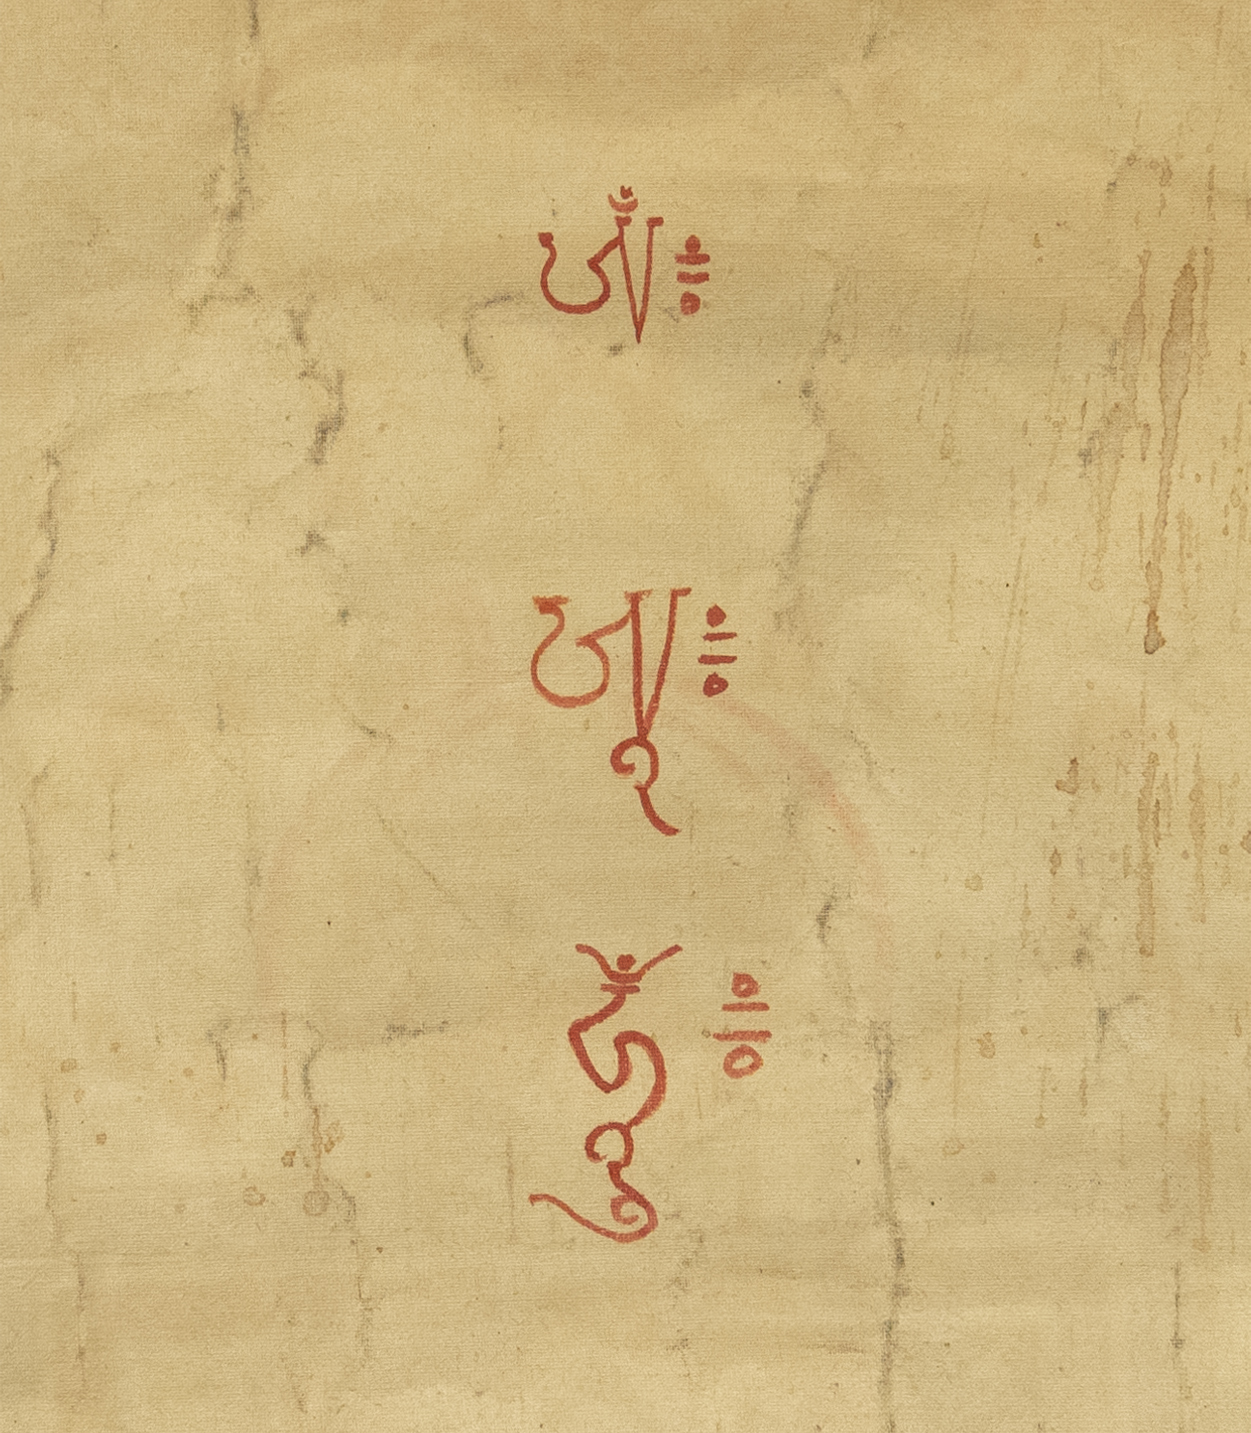 ཨོཾ༔
ཨཱ༔
ཧཱུྃ༔